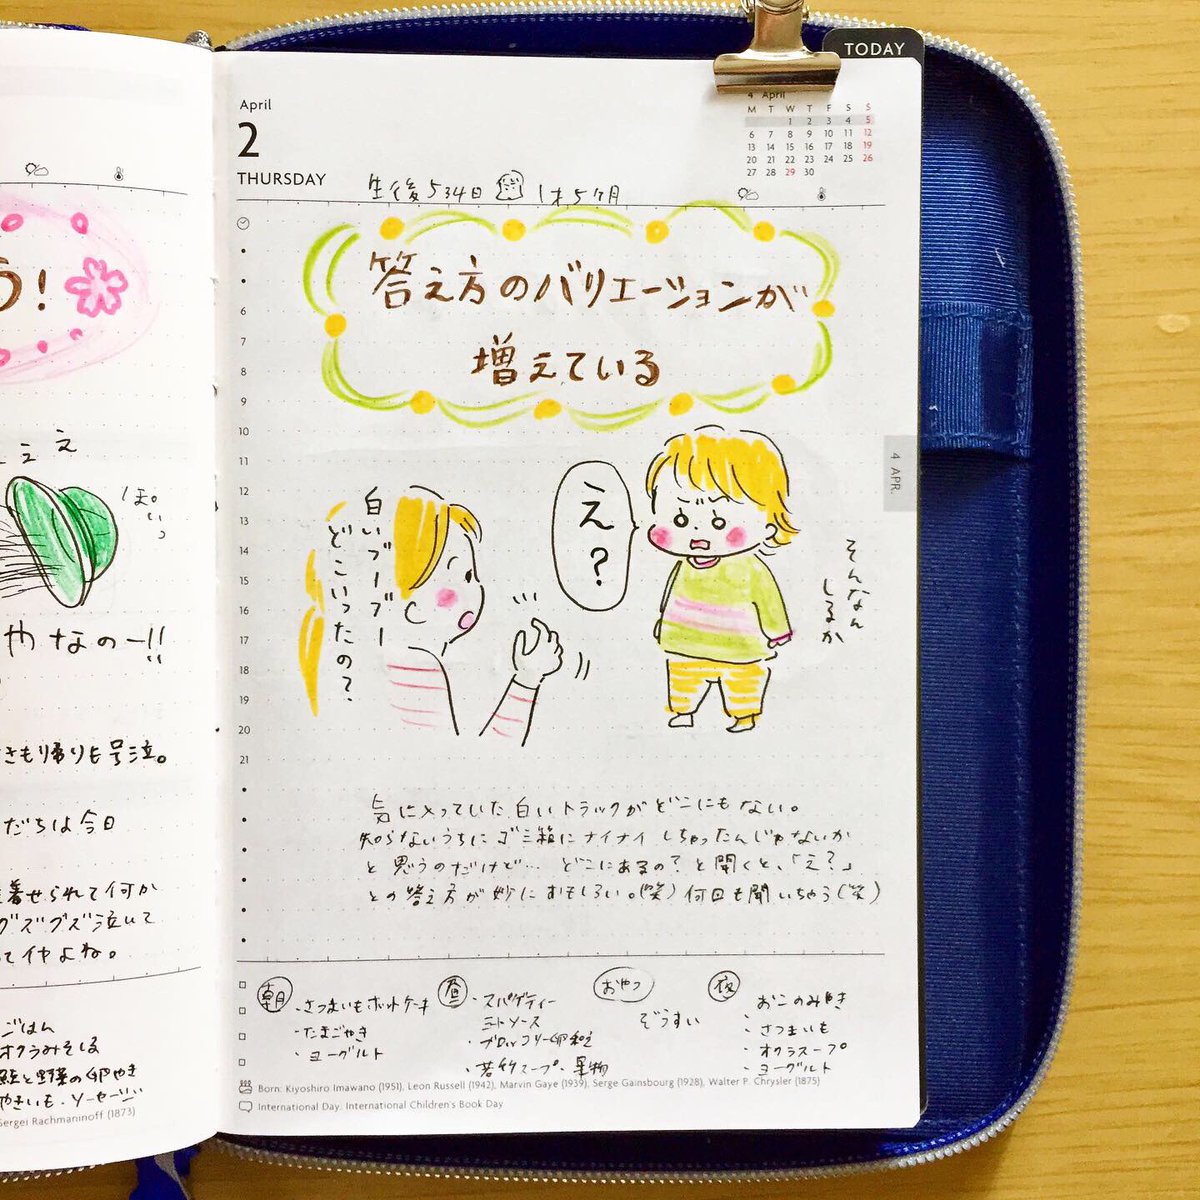 う!
ええ
ぽいっ
やなの一!!
きもり帰りも号泣。
だちは今日
着せられて何か
グズグズ泣いて
って仆よね。
ごはん
オクラみそしる
鮭と野菜の卵やき
やきいも・ソーセージ
Sergei Rachmaninoff (1873)
TODAY
April
2
THURSDAY
4 April
M T W T F S S
1 2 3 4 5
6 7 8 9 10 11 12
13 14 15 16 17 18 19
20 21 22 23 24 25 26
27 28 29 30
生後534日 1才5ヶ月
答え方のバリエーションが
増えている
6
7
8
9
10
11
12
13
14
15
16
17
18
19
20
21
4 APR.
白いブーブー
どこいったの?
え?
そんなん
しるか
気に入っていた白いトラックがどこにもない。
知らないうちにゴミ箱にナイナイしちゃったんじゃないか
と思うのだけど… どこにあるの?と聞くと、「え?」
との答え方が妙におもしろい。(笑)何回も聞いちゃう(笑)
朝
・さつまいもホットケーキ
・たまごやき
・ヨーグルト
昼
・スパゲティー
ミートソース
・ブロッコリー卵和え
・若竹スープ・果物
おやつ
ぞうすい
夜
おこのみやき
・さつまいも
・オクラスープ
・ヨーグルト
Born: Kiyoshiro Imawano (1951), Leon Russell (1942), Marvin Gaye (1939), Serge Gainsbourg (1928), Walter P. Chrysler (1875)
International Day: International Children's Book Day